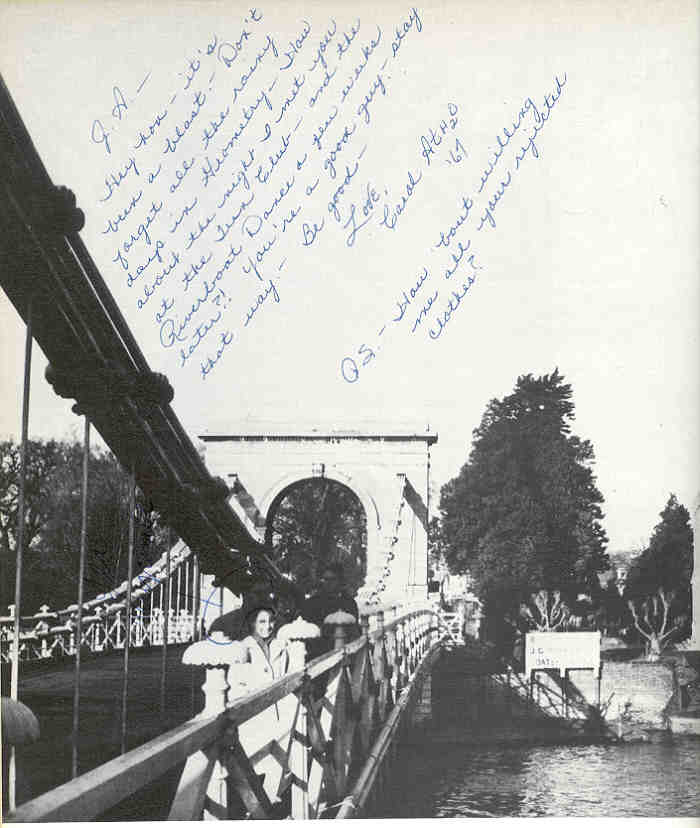 J.A. —
Hey hon - it's
been a blast. - Don't
forget all the rainy
days in Geometry - How
about the night I met you
at the Teen Club - and the
Riverboat Dance a few weeks
later?! You're a good guy. - stay
that way. - Be good -
Love,
Carol
'67
P.S. - How 'bout willing
me all your rejected
clothes?